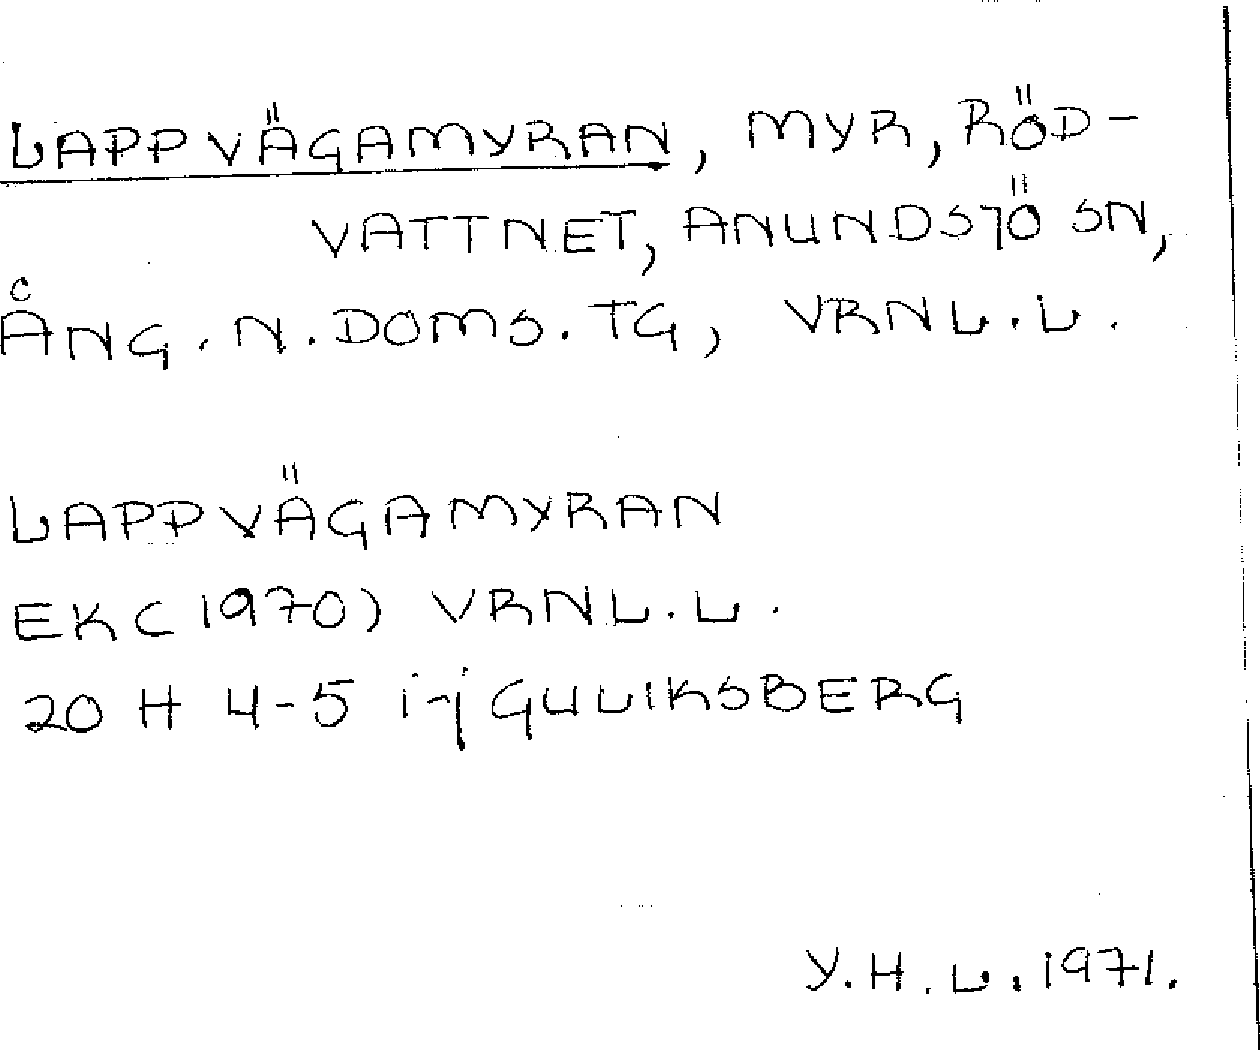 LAPPVÄGAMYRAN, MYR, RÖD-
VATTNET, ANUNDSJÖ SN,
ÅNG. N. DOMS. TG, VRNL. L.
LAPPVÄGAMYRAN
EK (1970) VRNL. L.
20 H 4-5 i-j GULLIKSBERG
Y. H. L. 1971.